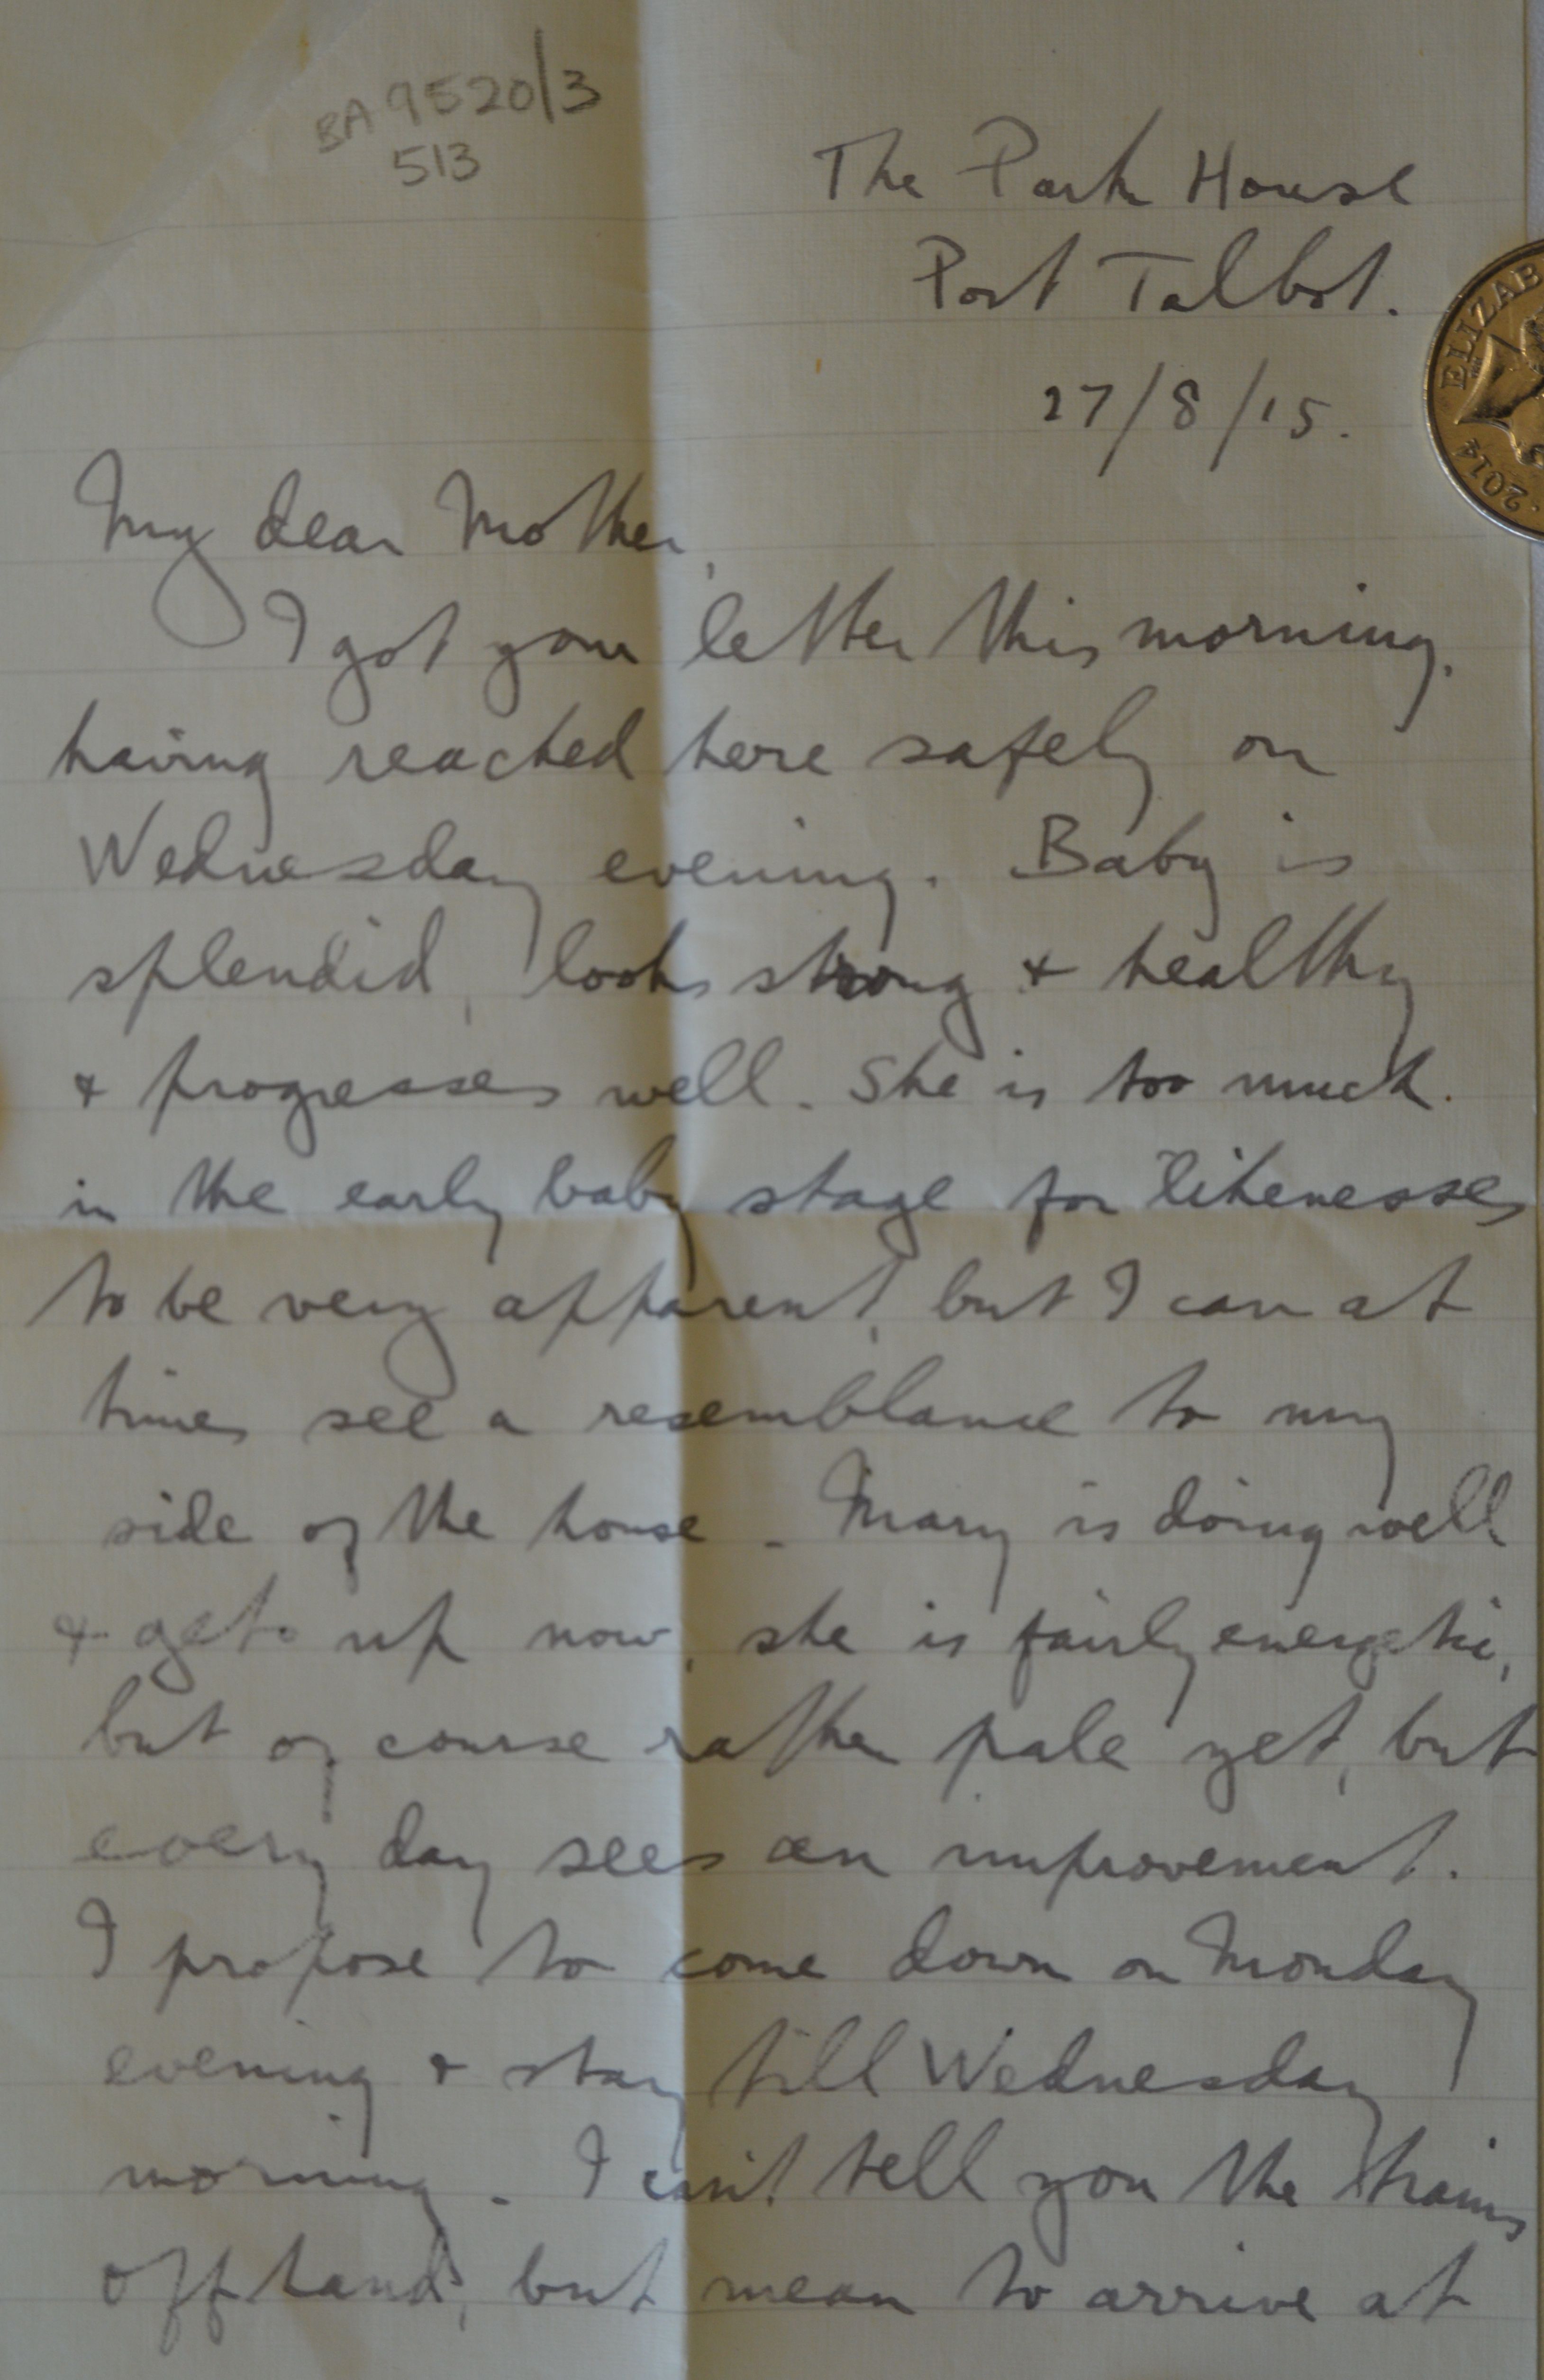 BA 9520/3
513
The Park House
Port Talbot.
27/8/15.
ELIZAB
2014
My dear Mother,
I got your letter this morning,
having reached here safely on
Wednesday evening. Baby is
splendid, looks strong & healthy
& progresses well. She is too much
in the early baby stage for likenesses
to be very apparent, but I can at
times see a resemblance to my
side of the house. Mary is doing well
& gets up now, she is fairly energetic,
but of course rather pale yet, but
every day sees an improvement.
I propose to come down on Monday
evening & stay till Wednesday
morning. I can't tell you the trains
off hand, but mean to arrive at